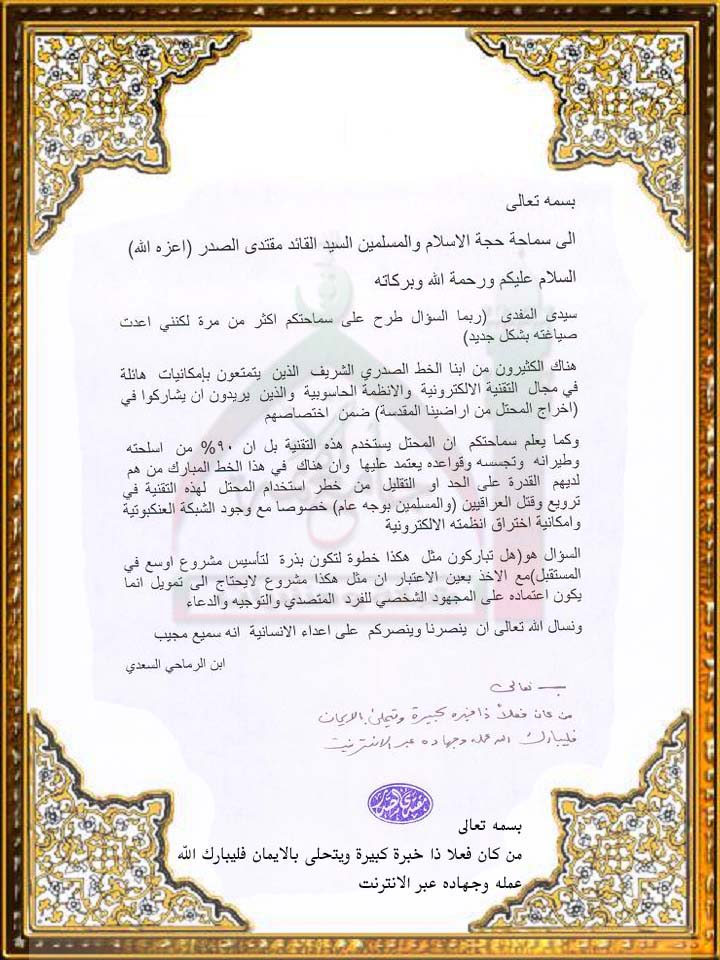 بسمه تعالى
الى سماحة حجة الاسلام والمسلمين السيد القائد مقتدى الصدر (اعزه الله)
السلام عليكم ورحمة الله وبركاته
سيدى المفدى (ربما السؤال طرح على سماحتكم اكثر من مرة لكنني اعدت
صياغته بشكل جديد)
هناك الكثيرون من ابنا الخط الصدري الشريف الذين يتمتعون بإمكانيات هائلة
في مجال التقنية الالكترونية والانظمة الحاسوبية والذين يريدون ان يشاركوا في
(اخراج المحتل من اراضينا المقدسة) ضمن اختصاصهم
وكما يعلم سماحتكم ان المحتل يستخدم هذه التقنية بل ان ٩٠% من اسلحته
وطيرانه وتجسسه وقواعده يعتمد عليها وان هناك في هذا الخط المبارك من هم
لديهم القدرة على الحد او التقليل من خطر استخدام المحتل لهذه التقنية في
ترويع وقتل العراقيين (والمسلمين بوجه عام) خصوصا مع وجود الشبكة العنكبوتية
وامكانية اختراق انظمته الالكترونية
السؤال هو(هل تباركون مثل هكذا خطوة لتكون بذرة لتأسيس مشروع اوسع في
المستقبل)مع الاخذ بعين الاعتبار ان مثل هكذا مشروع لايحتاج الى تمويل انما
يكون اعتماده على المجهود الشخصي للفرد المتصدي والتوجيه والدعاء
ونسال الله تعالى ان ينصرنا وينصركم على اعداء الانسانية انه سميع مجيب
ابن الرماحي السعدي
بسمه تعالى
من كان فعلاً ذا خبرة كبيرة ويتحلى بالايمان
فليبارك الله عمله وجهاده عبر الانترنيت
بسمه تعالى
من كان فعلا ذا خبرة كبيرة ويتحلى بالايمان فليبارك الله
عمله وجهاده عبر الانترنت